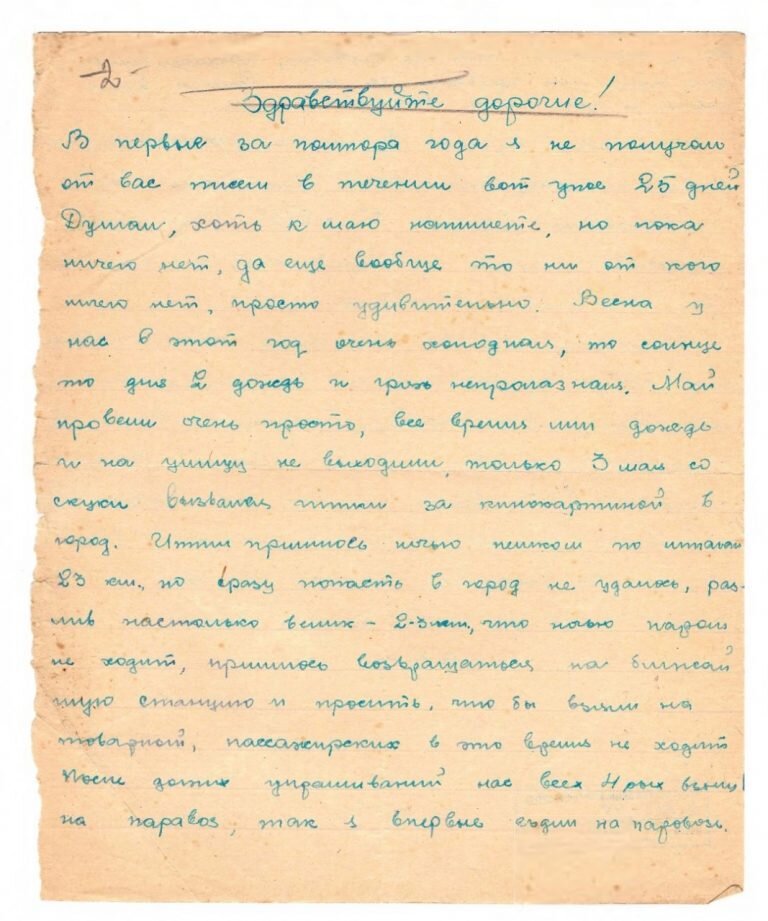 -2-
Здравствуйте дорогие!
В первые за полтора года я не получаю
от вас писем в течении вот уже 25 дней
Думал, хоть к маю напишете, но пока
ничего нет, да еще вообще то ни от кого
ничего нет, просто удивительно. Весна у
нас в этот год очень холодная, то солнце
то дня 2 дождь и грязь непролазная. Май
провели очень просто, все время лил дождь
и на улицу не выходили, только 3 мая со
скуки вызвался итти за кинокартиной в
город. Итти пришлось ночью пешком по шпалам
23 км., но сразу попасть в город не удалось, раз-
лив настолько велик - 2-3 км., что ночью паром
не ходит, пришлось возвращаться на ближай
шую станцию и просить, что бы взяли на
товарной, пассажирских в это время не ходит
После долгих упрашиваний нас всех 4 рых взяли
на паравоз, так я впервые ездил на паровозе.